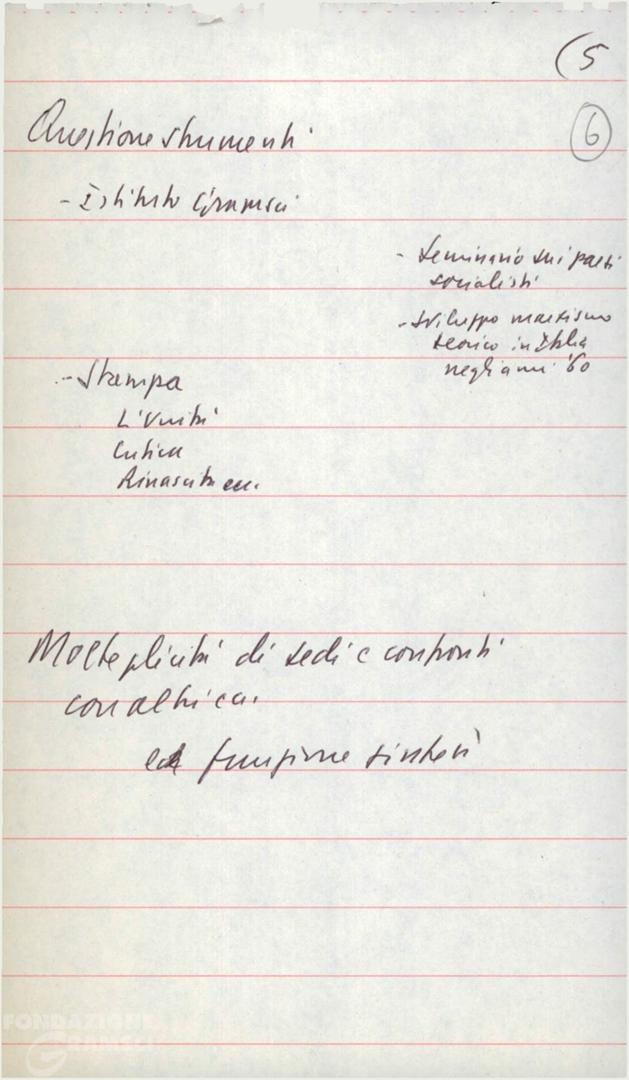 (5
6
Questione strumenti
- Istituto Gramsci
- seminario sui paesi
socialisti
- sviluppo marxismo
teorico in Italia
negli anni '60
- Stampa
L'Unità
Critica
Rinascita ecc.
Molteplicità di sedi e confronti
con altri ecc.
ed funzione sintesi
FONDAZIONE
GRAMSCI